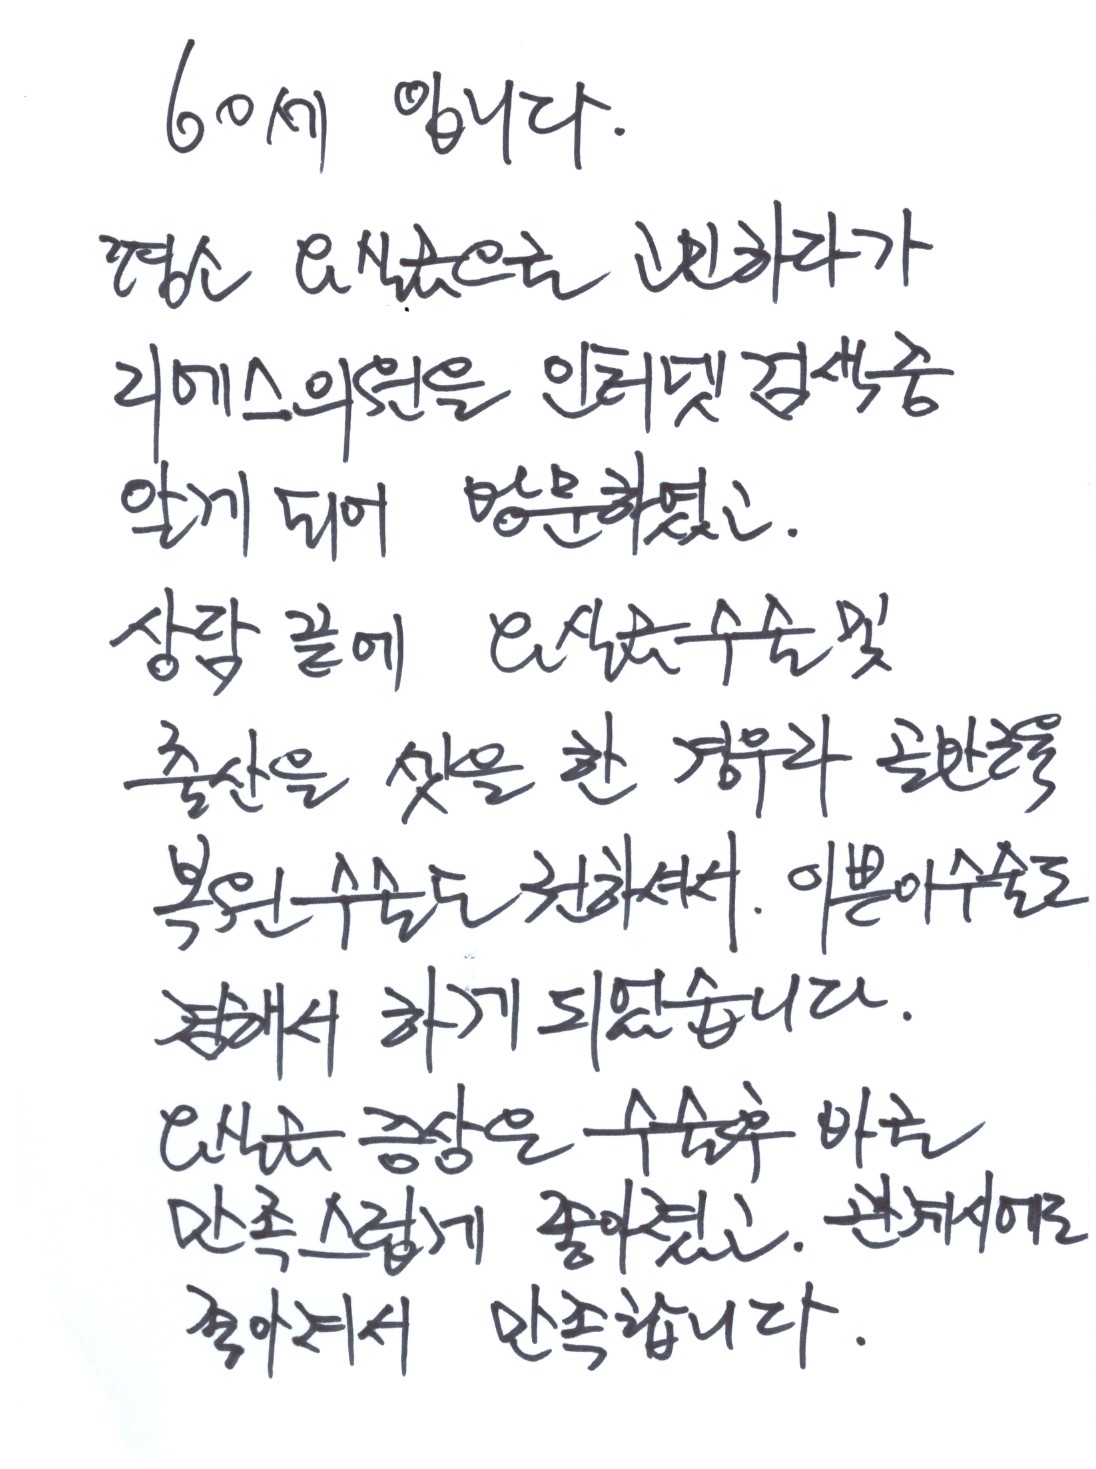 60세 입니다.
평소 요실금으로 고민하다가
리에스의원을 인터넷 검색중
알게 되어 방문하였고.
상담 끝에 요실금수술 및
출산을 셋을 한 경우라 골반근육
복원수술도 권하셔서. 이쁜이수술도
함께 하게 되었습니다.
요실금 증상은 수술후 바로
만족스럽게 좋아졌고. 관계시에도
좋아져서 만족합니다.